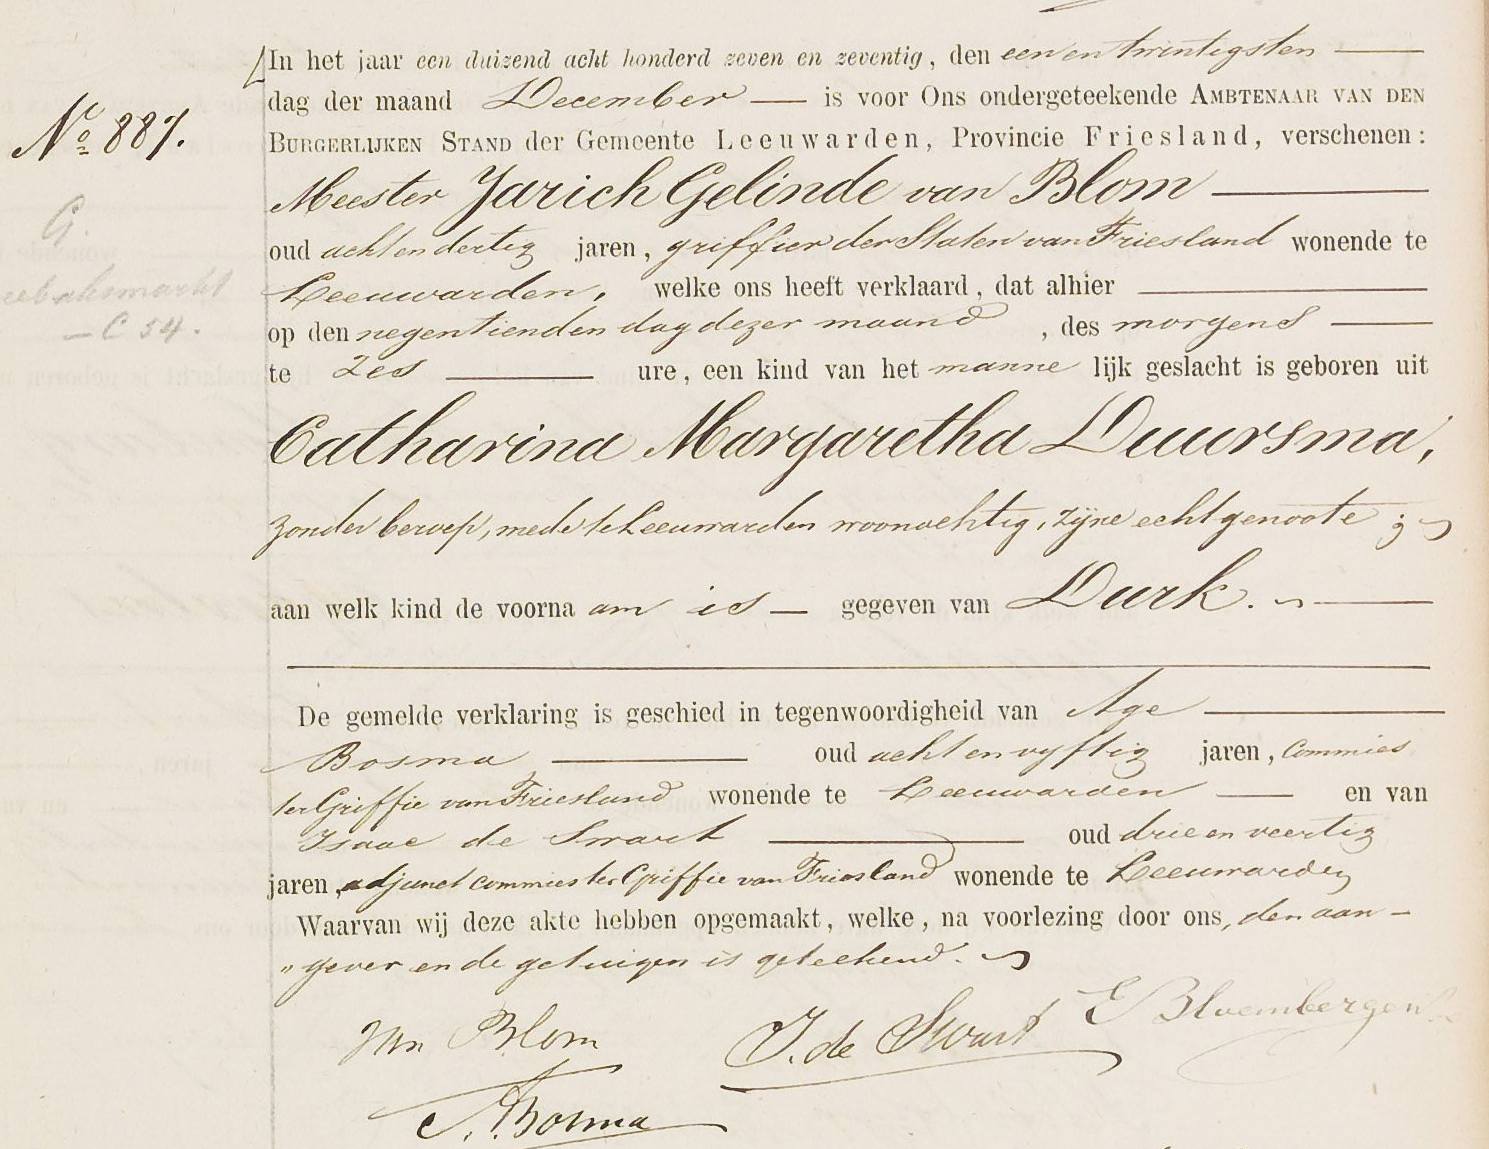 In het jaar een duizend acht honderd zeven en zeventig, den een en twintigsten
dag der maand December is voor Ons ondergeteekende AMBTENAAR VAN DEN
No 887.
BURGERLIJKEN STAND der Gemeente Leeuwarden, Provincie Friesland, verschenen:
Meester Jarich Gelinde van Blom
G.
oud acht en dertig jaren, griffier der Staten van Friesland wonende te
Leeuwarden, welke ons heeft verklaard, dat alhier
C 54.
op den negentienden dag dezer maand, des morgens
te zes ure, een kind van het mannelijk geslacht is geboren uit
Catharina Margaretha Duursma,
zonder beroep, mede te Leeuwarden woonachtig, zijne echtgenoote;
aan welk kind de voornaam is gegeven van Durk.
De gemelde verklaring is geschied in tegenwoordigheid van Age
Bosma oud acht en vyftig jaren, commies
ter Griffie van Friesland wonende te Leeuwarden en van
Isaac de Swart oud drie en veertig
jaren, adjunct commies ter Griffie van Friesland wonende te Leeuwarden
Waarvan wij deze akte hebben opgemaakt, welke, na voorlezing door ons, den aan-
"gever en de getuigen is geteekend.
van Blom J. de Swart E Bloembergen
A. Bosma